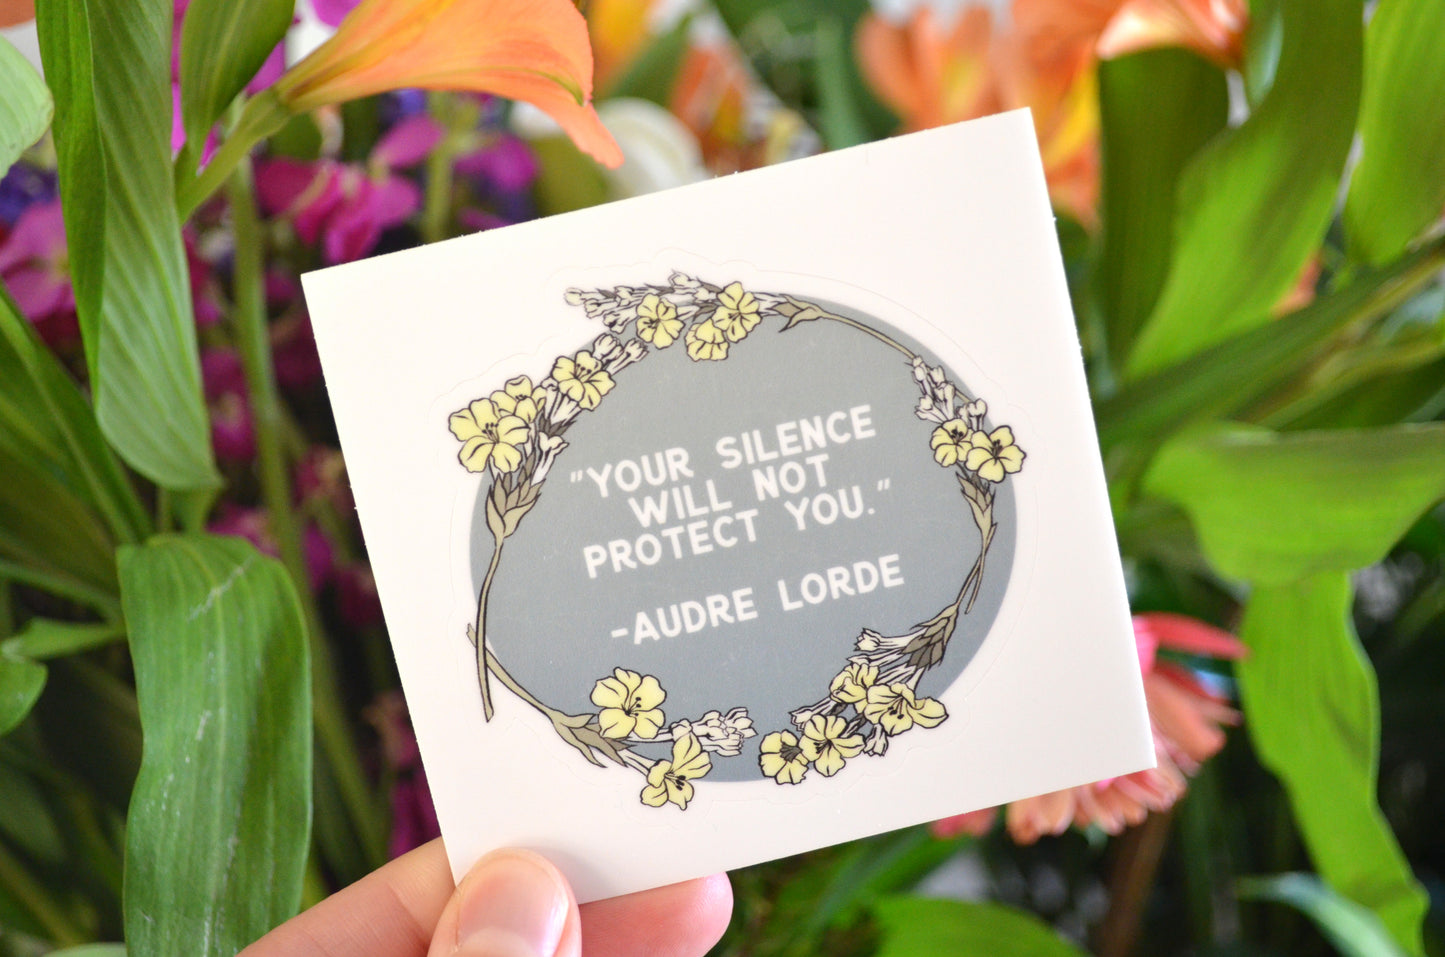 "YOUR SILENCE
WILL NOT
PROTECT YOU."
-AUDRE LORDE